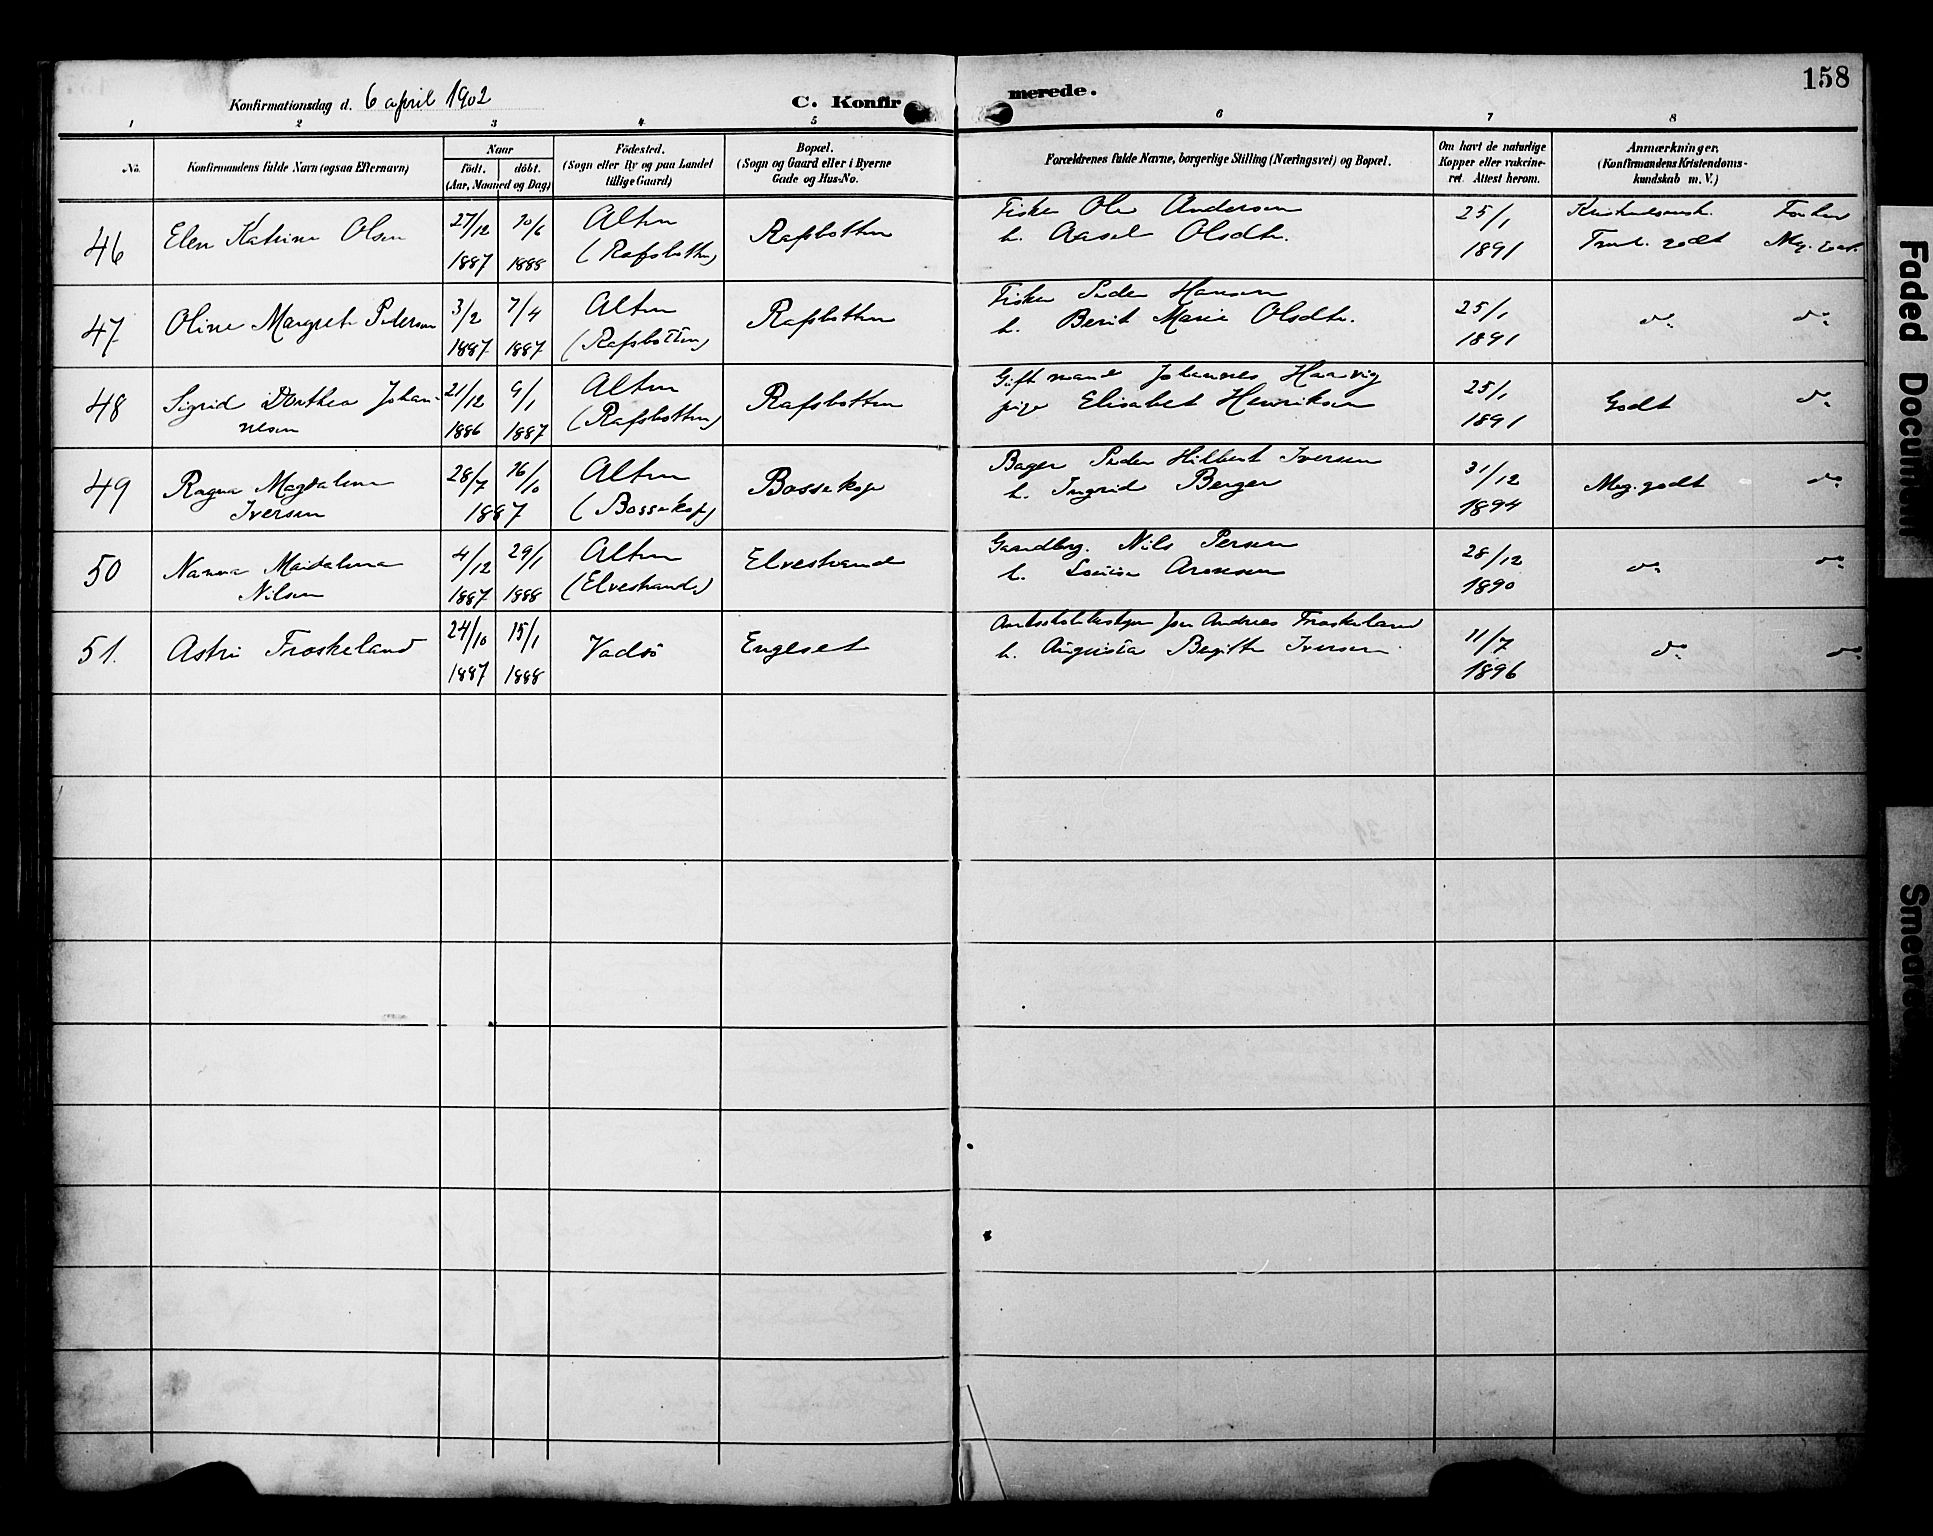 158
Konfirmationsdag d. 6 april 1902
C. Konfirmerede.
1 2 3 4 5 6 7 8
No. Konfirmandens fulde Navn (ogsaa Efternavn) Naar Födt. döbt. (Aar, Maaned og Dag) Födested. (Sogn eller By og paa Landet tillige Gaard) Bopæl. (Sogn og Gaard eller i Byerne Gade og Hus-No. Forældrenes fulde Navne, borgerlige Stilling (Næringsvei) og Bopæl. Om havt de naturlige Kopper eller vakcineret. Attest herom. Anmærkninger. (Konfirmandens Kristendomskundskab m. V.)
46 Elen Katrine Olsen 27/12 1887 10/6 1888 Alten (Rafsbotten) Rafsbotten Fisker Ole Andersen h. Aasel Olsdtr. 25/1 1891 Kristendomsk. Teml. godt Forhor Meg. godt.
47 Oline Margrete Pedersen 3/2 1887 7/4 1887 Alten (Rafsbotten) Rafsbotten Fisker Peder Hansen h. Berit Marie Olsdtr. 25/1 1891 do do
48 Sigrid Dorthea Johannesen 21/12 1886 9/1 1887 Alten (Rafsbotten) Rafsbotten Gift mand Johannes Haarvig pige Elisabet Henriksen 25/1 1891 Godt do
49 Ragna Magdalena Iversen 28/7 16/10 1887 Alten (Bossekop) Bossekop Bager Peder Hilbert Iversen h. Ingrid Berger 31/12 1894 Meg. godt do
50 Nanna Maidalena Nilsen 4/12 1887 29/1 1888 Alten (Elvestrand) Elvestrand Gaardbrg. Nils Persen h. Lovisa Aronsen 28/12 1890 do do
51. Astri Froskeland 24/10 1887 15/1 1888 Vadsö Engeset Jon Andreas Froskeland h. Augusta Begitte Iversen 11/7 1896 do do
Faded Document
Smeared